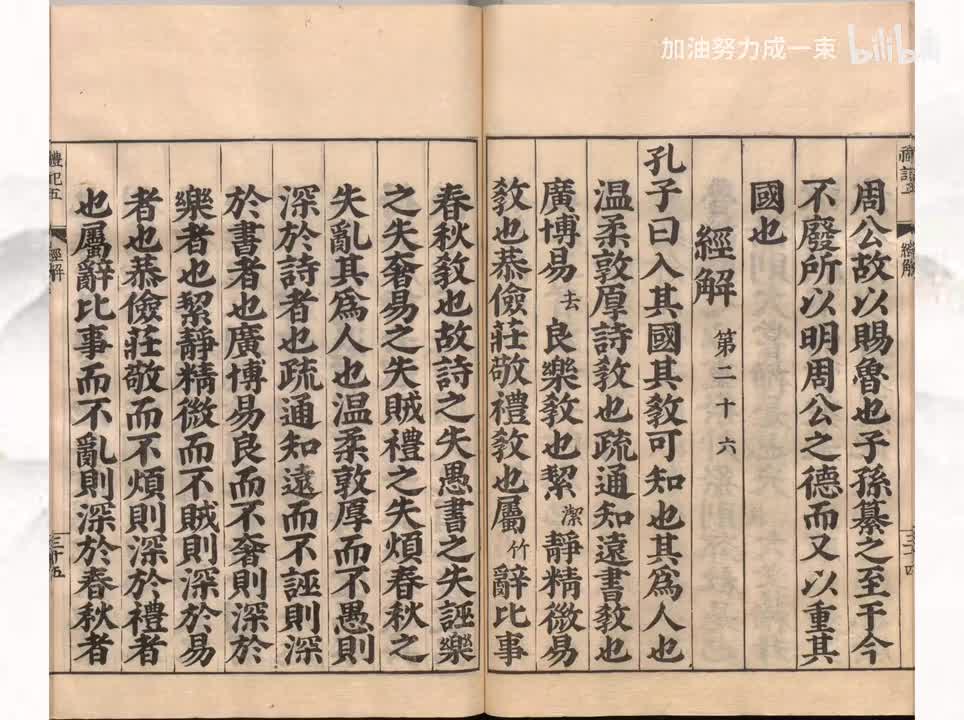 加油努力成一束
bilibili
周公故以賜魯也子孫纂之至于今
不廢所以明周公之德而又以重其
國也
經解 第二十六
孔子曰入其國其敎可知也其爲人也
温柔敦厚詩敎也疏通知遠書敎也
廣博易 去 良樂敎也絜 潔 靜精微易
敎也恭儉莊敬禮敎也屬 竹 辭比事
春秋敎也故詩之失愚書之失誣樂
之失奢易之失賊禮之失煩春秋之
失亂其爲人也温柔敦厚而不愚則
深於詩者也疏通知遠而不誣則深
於書者也廣博易良而不奢則深於
樂者也絜靜精微而不賊則深於易
者也恭儉莊敬而不煩則深於禮者
也屬辭比事而不亂則深於春秋者
禮記五
經解
三十五